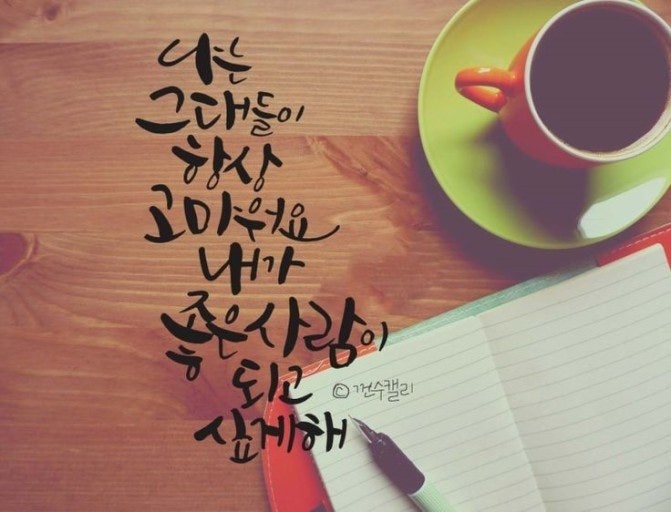 나는
그대들이
항상
고마워요
내가
좋은사람이
되고
싶게해
ⓒ껀수캘리